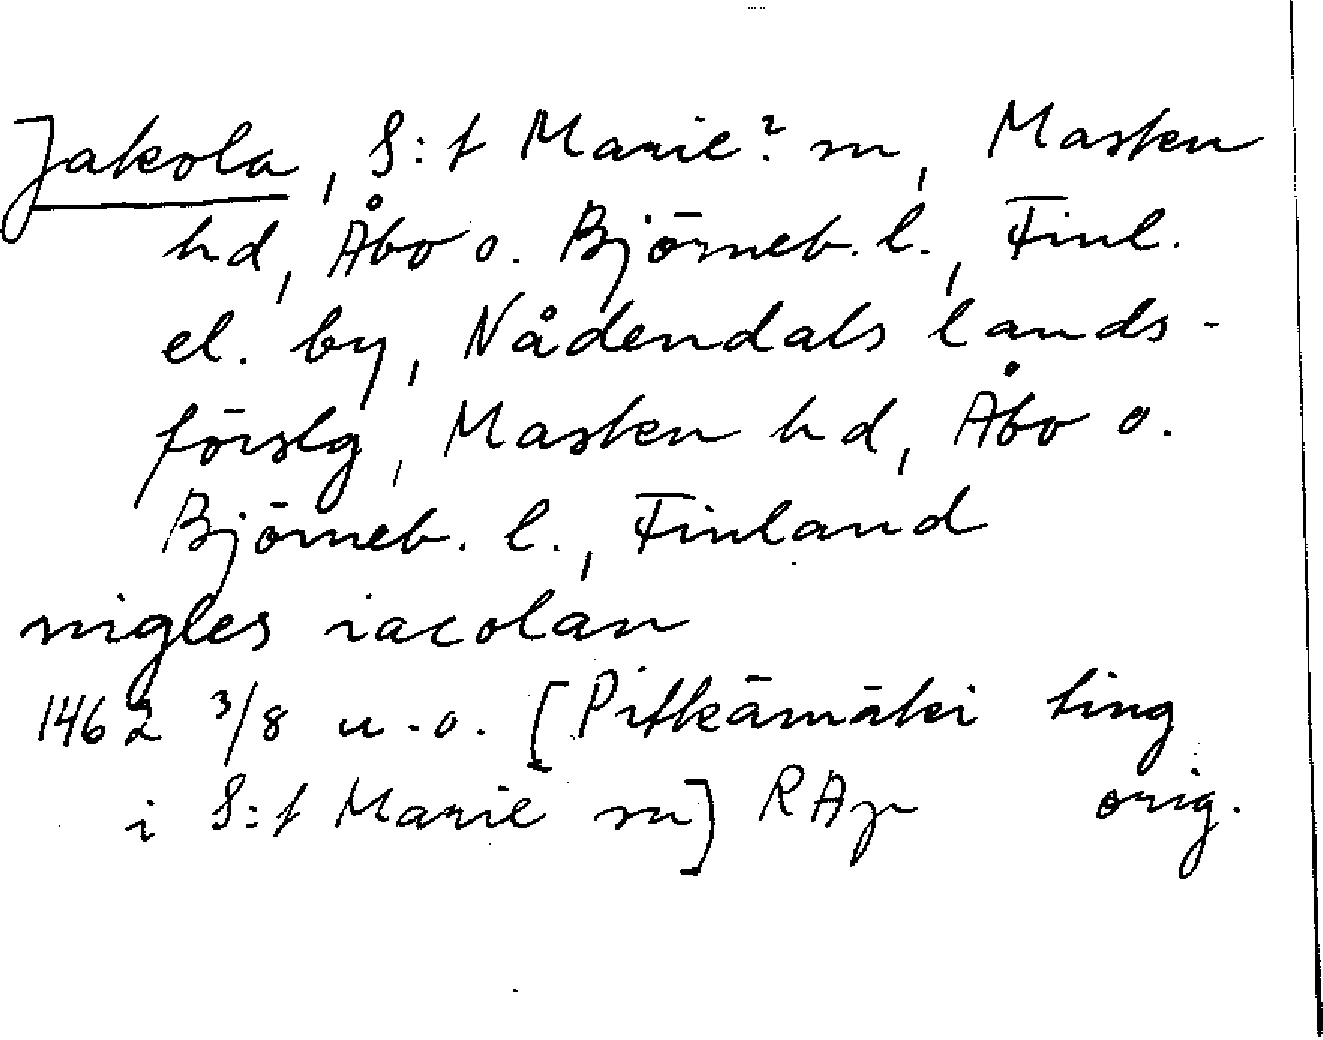 Jakola, S:t Marie? sn, Masku
hd, Åbo o. Björneb. l., Finl.
el. by, Nådendals lands-
förslg, Masku hd, Åbo o.
Björneb. l., Finland
nigles iacolan
1462 3/8 u.o. [Pitkämäki ting
i S:t Marie sn] RAp orig.